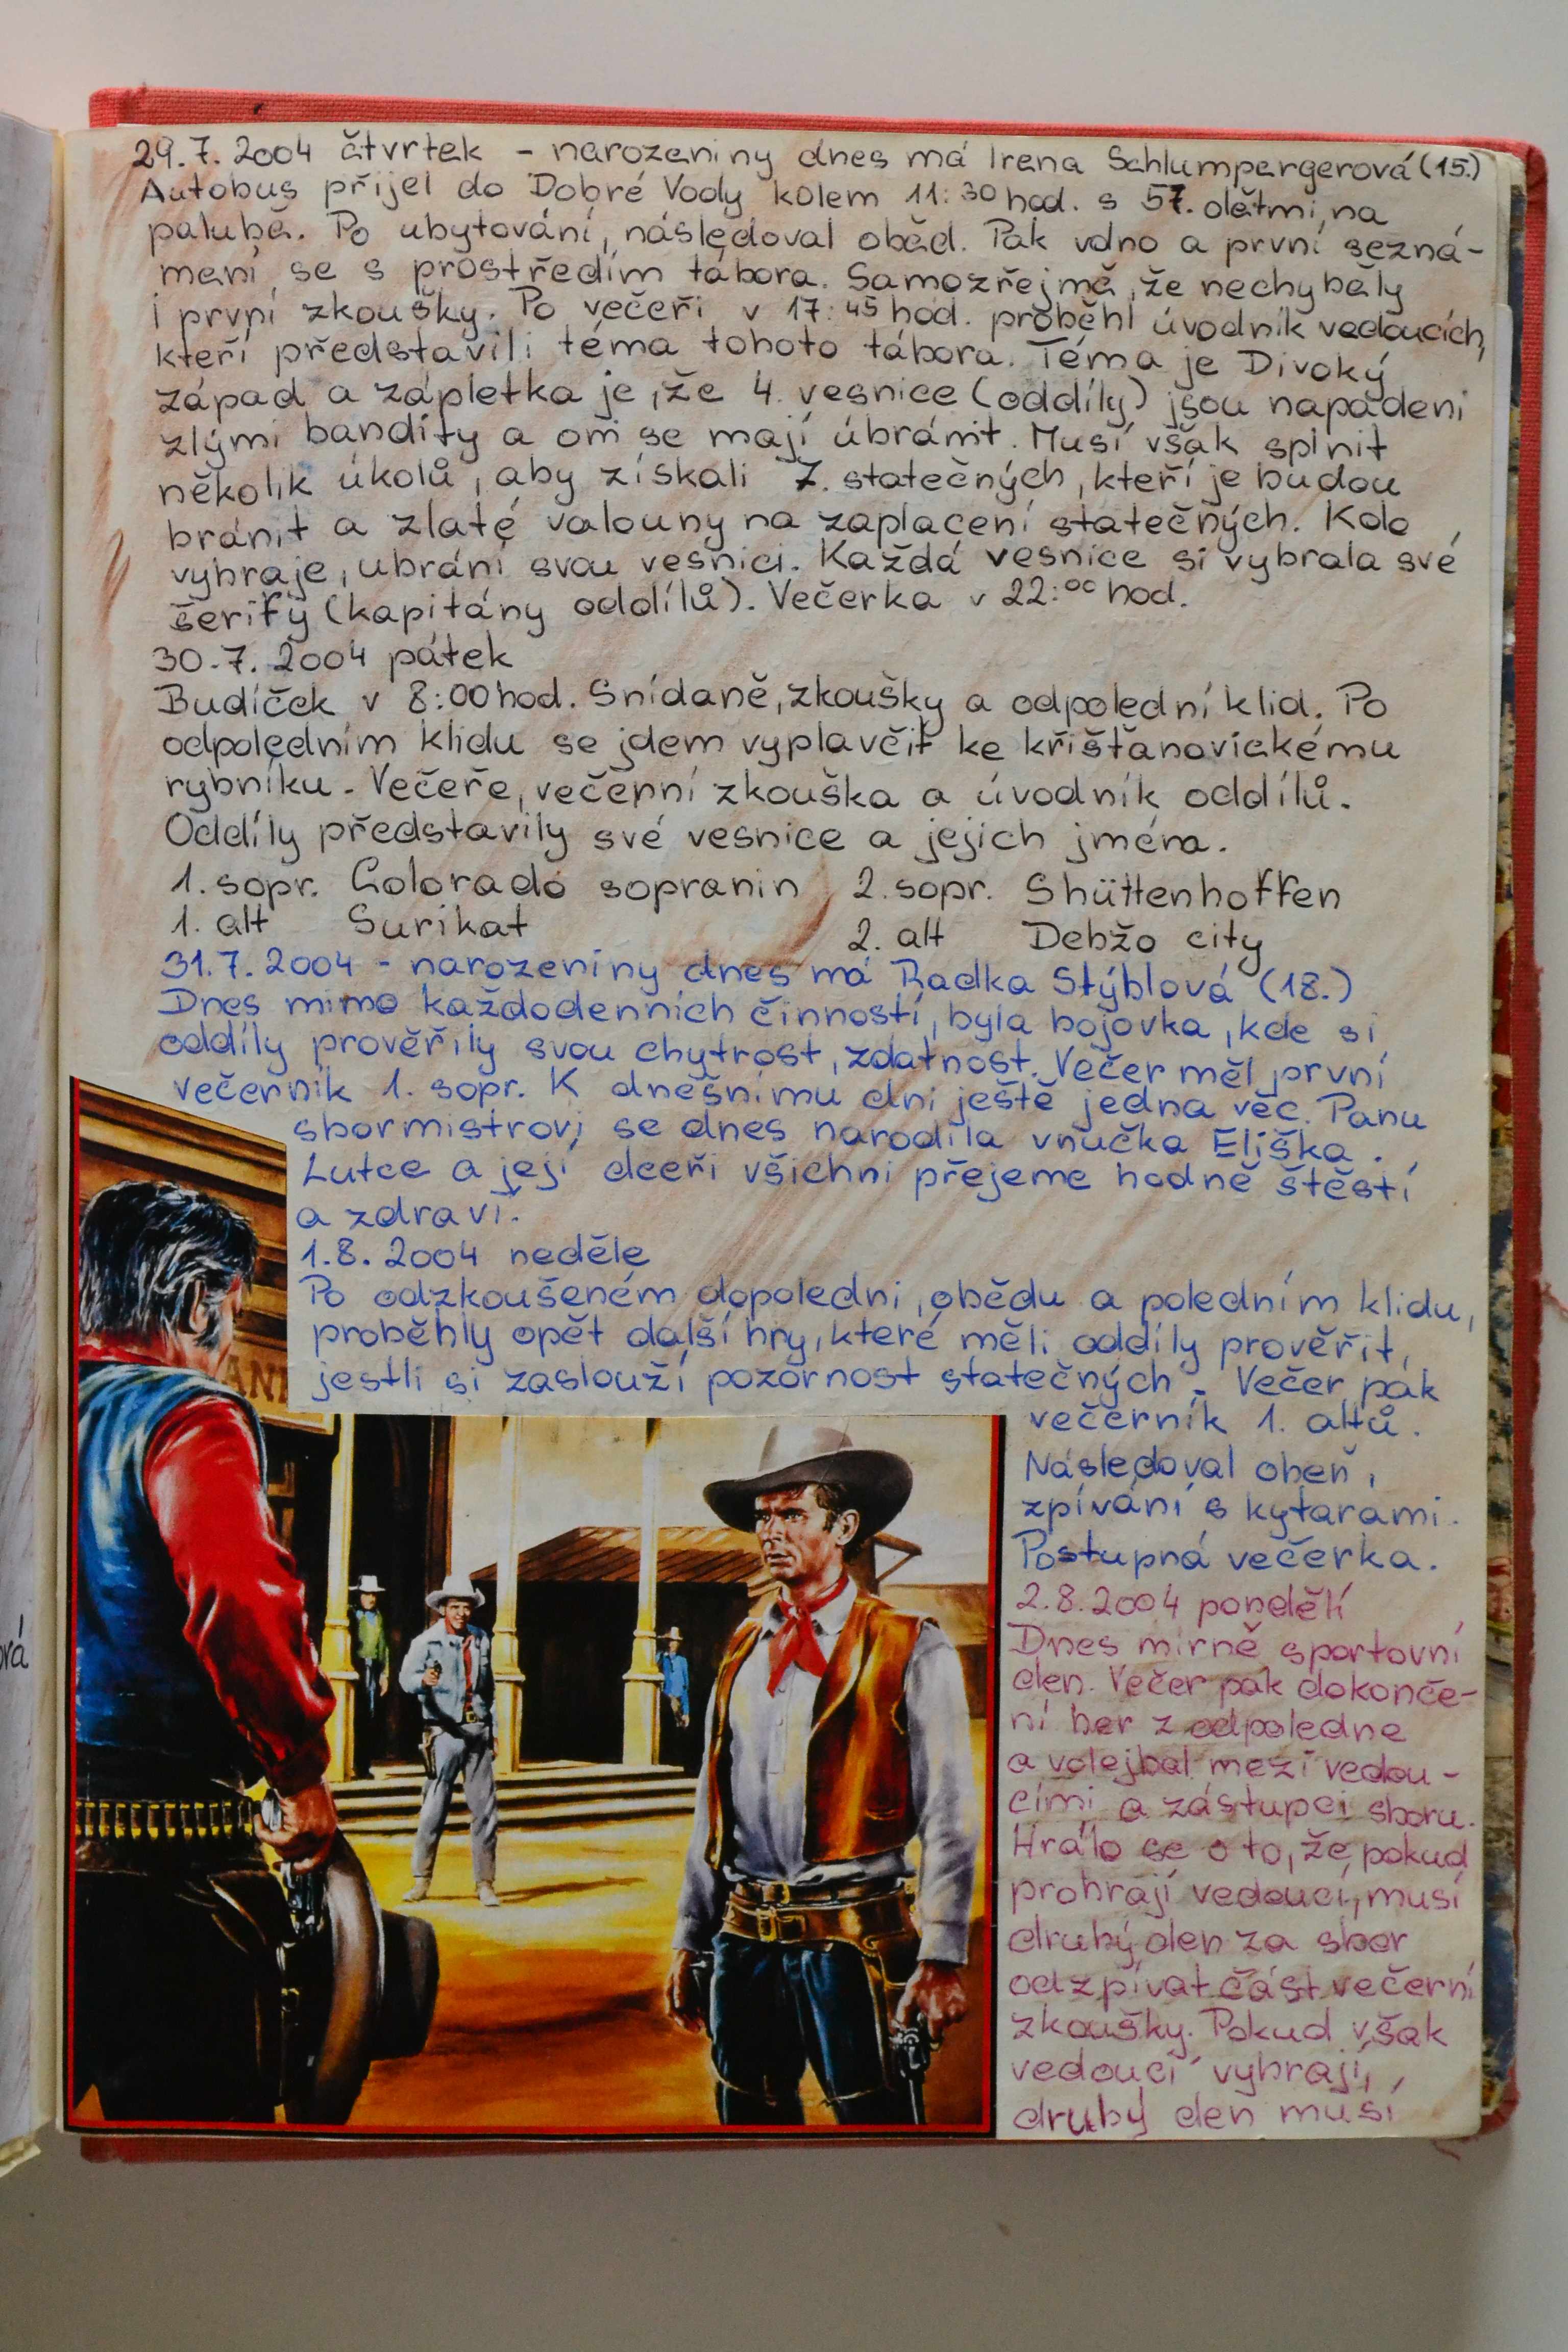 29.7. 2004 čtvrtek - narozeniny dnes má Irena Schlumpergerová (15.)
Autobus přijel do Dobré Vody kolem 11:30 hod. s 57. dětmi na
palubě. Po ubytování, následoval oběd. Pak volno a první sezná-
mení se s prostředím tábora. Samozřejmě, že nechyběly
i první zkoušky. Po večeři v 17:45 hod. proběhl úvodník vedoucích,
kteří představili téma tohoto tábora. Téma je Divoký
západ a zápletka je, že 4. vesnice (oddíly) jsou napadeni
zlými bandity a oni se mají úbránit. Musí však splnit
několik úkolů, aby získali 7. statečných, kteří je budou
bránit a zlaté valouny na zaplacení statečných. Kdo
vyhraje, ubrání svou vesnici. Každá vesnice si vybrala své
šerify (kapitány oddílů). Večerka v 22:00 hod.
30.7. 2004 pátek
Budíček v 8:00 hod. Snídaně, zkoušky a odpolední klid. Po
odpoledním klidu se jdem vyplavčit ke křišťanovickému
rybníku. Večeře, večerní zkouška a úvodník oddílů.
Oddíly představily své vesnice a jejich jména.
1. sopr. Colorado sopranin 2. sopr. Shüttenhoffen
1. alt Surikat 2. alt Debžo city
31.7. 2004 - narozeniny dnes má Radka Stýblová (18.)
Dnes mimo každodenních činností, byla bojovka, kde si
oddíly prověřily svou chytrost, zdatnost. Večer měl první
večerník 1. sopr. K dnešnímu dni ještě jedna věc. Panu
sbormistrovi se dnes narodila vnučka Eliška.
Lutce a její dceři všichni přejeme hodně štěstí
a zdraví.
1.8. 2004 neděle
Po odzkoušeném dopoledni, obědu a poledním klidu,
proběhly opět další hry, které měli oddíly prověřit,
jestli si zaslouží pozornost statečných. Večer pak
večerník 1. altů.
Následoval oheň,
zpívání s kytarami.
Postupná večerka.
2.8.2004 pondělí
Dnes mírně sportovní
den. Večer pak dokonče-
ní her z odpoledne
a volejbal mezi vedou-
cími a zástupci sboru.
Hrálo se o to, že pokud
prohrají vedoucí, musí
druhý den za sbor
odzpívat část večerní
zkoušky. Pokud však
vedoucí vyhrají,
druhý den musí